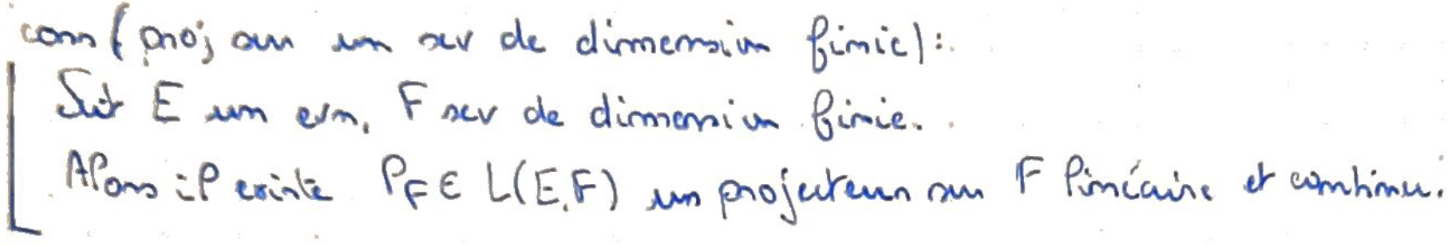 coro (proj sur un sev de dimension finie):
Soit E un evn, F sev de dimension finie.
Alors il existe P_F ∈ L(E,F) un projecteur sur F linéaire et continu.